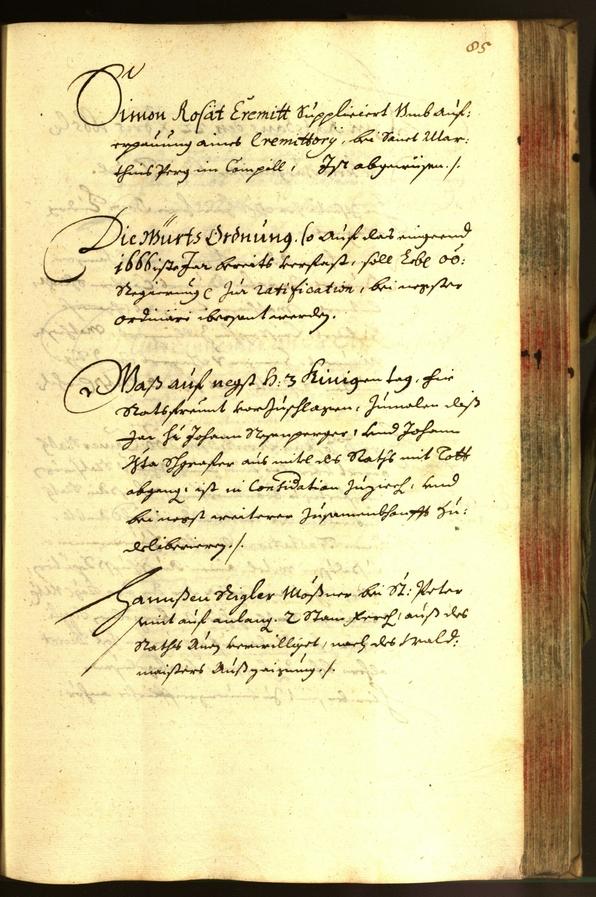 85
Simon Rosat Eremitt Suppliciert Umb auf:
erpauung aines Eremittory, bei Sanct Mar:
thins Perg im Campill, Ist abgewisen ./.
Die Würts Ordnung, so auf das eingeend
1666iste Jar bereits verfasst, soll Lobl. OÖ:
Regierung zur ratification, bei negster
ordinari ibersent werden.
Waß auf negst H: 3 Künigen tag, für
Ratsfreunt vorzuschlagen, zumalen diß
Jar Hr Johann, und Johann
aus mitl des Raths mit Todt
abgang, ist in Considation zuziech, und
bei negst weiterer zusamenkhonfft zu:
deliberieren ./.
Hannßen Rigler Mößner bei St: Peter
wirt auf anlang. 2 Stam Ferch, auß des
Raths Aug verwilliget, nach des Wald:
maisters Außzaigung ./.